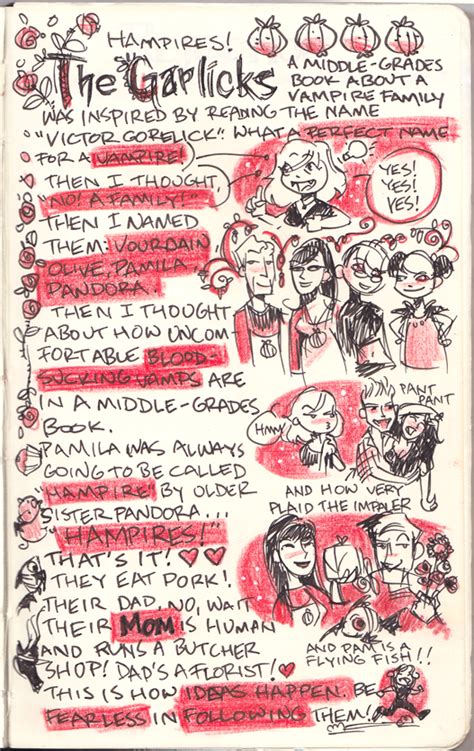 HAMPIRES!
The Garlicks
A MIDDLE-GRADES
BOOK ABOUT A
VAMPIRE FAMILY
WAS INSPIRED BY READING THE NAME
"VICTOR GORELICK" WHAT A PERFECT NAME
FOR A VAMPIRE!
THEN I THOUGHT,
"NO! A FAMILY!"
YES!
YES!
YES!
THEN I NAMED
THEM: VOURDALIN
OLIVE, PAMILA,
PANDORA.
THEN I THOUGHT
ABOUT HOW UNCOM-
FORTABLE BLOOD-
SUCKING VAMPS ARE
IN A MIDDLE-GRADES
BOOK.
HMM
PANT
PANT
PAMILA WAS ALWAYS
GOING TO BE CALLED
"HAMPIRE" BY OLDER
SISTER PANDORA...
"HAMPIRES!"
AND HOW VERY
PLAID THE IMPALER
THAT'S IT! ♥♥
THEY EAT PORK!
THEIR DAD, NO, WAIT
THEIR MOM IS HUMAN
AND RUNS A BUTCHER
SHOP! DAD'S A FLORIST! ♥
AND PAM IS A
FLYING FISH!!
THIS IS HOW IDEAS HAPPEN. BE
FEARLESS IN FOLLOWING THEM!